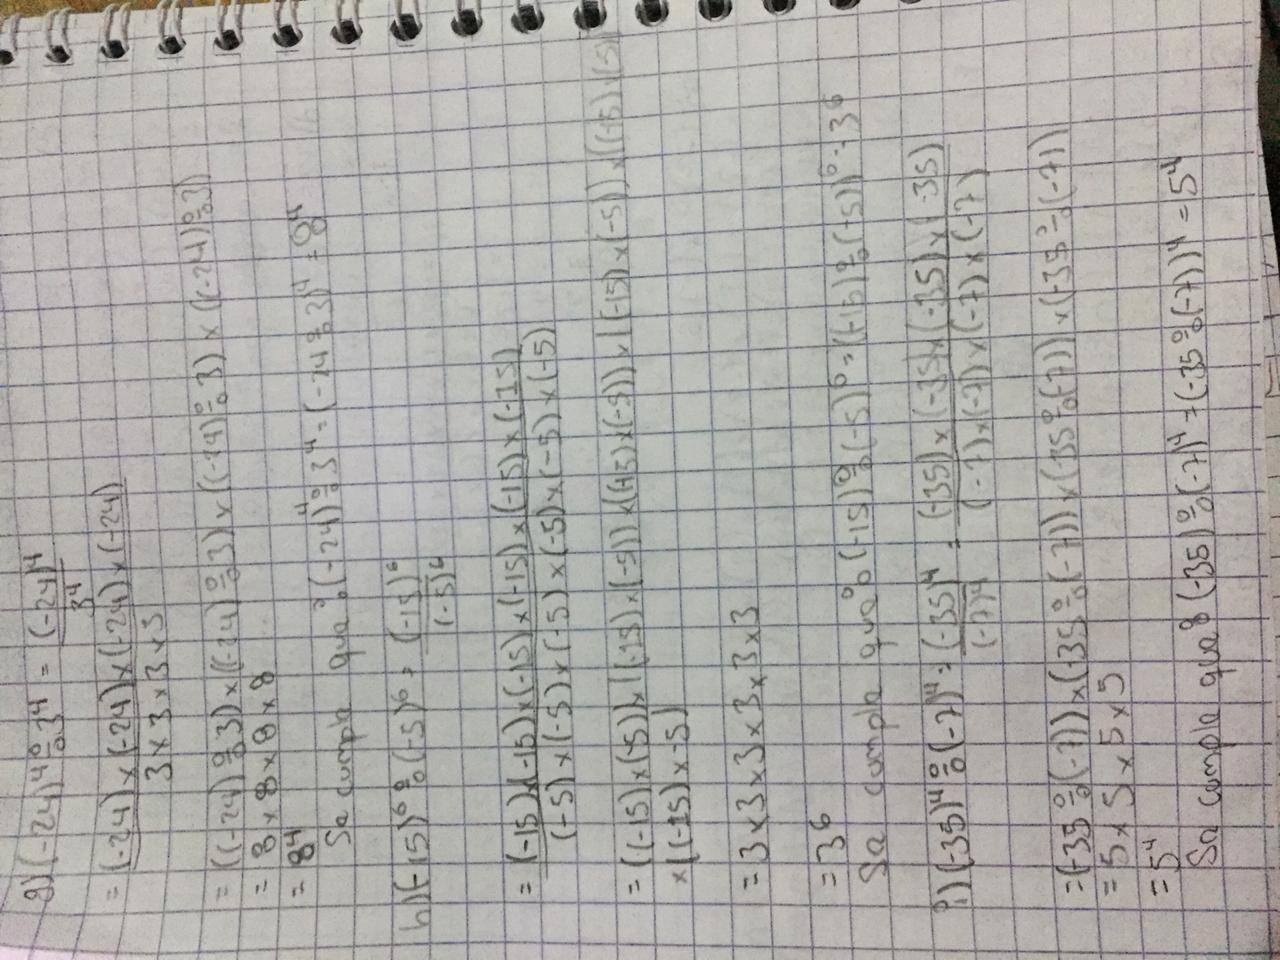 g) (-24)⁴ ÷ 3⁴ = (-24)⁴ / 3⁴
= (-24) x (-24) x (-24) x (-24) / 3 x 3 x 3 x 3
= ((-24) ÷ 3) x ((-24) ÷ 3) x ((-24) ÷ 3) x ((-24) ÷ 3)
= 8 x 8 x 8 x 8
= 8⁴
Se cumple que: (-24)⁴ ÷ 3⁴ = (-24 ÷ 3)⁴ = 8⁴
h) (-15)⁶ ÷ (-5)⁶ = (-15)⁶ / (-5)⁶
= (-15) x (-15) x (-15) x (-15) x (-15) x (-15) / (-5) x (-5) x (-5) x (-5) x (-5) x (-5)
= ((-15) x (-5)) x ((-15) x (-5)) x ((-15) x (-5)) x ((-15) x (-5)) x
x ((-15) x -5)
= 3 x 3 x 3 x 3 x 3 x 3
= 3⁶
Se cumple que: (-15)⁶ ÷ (-5)⁶ = ((-15) ÷ (-5))⁶ = 3⁶
i) (-35)⁴ ÷ (-7)⁴ = (-35)⁴ / (-7)⁴ = (-35) x (-35) x (-35) x (-35) / (-7) x (-7) x (-7) x (-7)
= (-35 ÷ (-7)) x (-35 ÷ (-7)) x (-35 ÷ (-7)) x (-35 ÷ (-7))
= 5 x 5 x 5 x 5
= 5⁴
Se cumple que: (-35)⁴ ÷ (-7)⁴ = (-35 ÷ (-7))⁴ = 5⁴